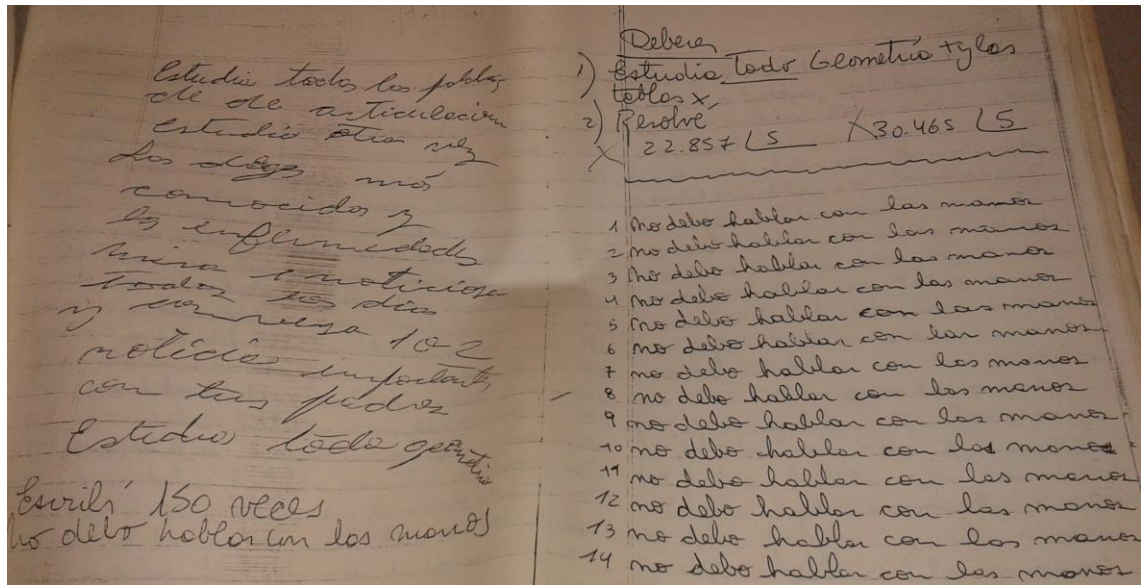 Estudia todas las palabras
de de articulación
Estudia otra vez
Las drogas más
conocidas y
las enfermedades
mira 1 noticioso
todos los días
y conversa 1 o 2
noticias importantes
con tus padres
Estudia toda geometría
Escribí 150 veces
No debo hablar con las manos
Deberes
1) Estudia todo Geometría + y las
tablas x,
2) Resolve
22.857 5 x 30.465 5
1 No debo hablar con las manos
2 no debo hablar con las manos
3 no debo hablar con las manos
4 no debo hablar con las manos
5 no debo hablar con las manos
6 no debo hablar con las manos
7 no debo hablar con las manos
8 no debo hablar con las manos
9 no debo hablar con las manos
10 no debo hablar con las manos
11 no debo hablar con las manos
12 no debo hablar con las manos
13 no debo hablar con las manos
14 no debo hablar con las manos